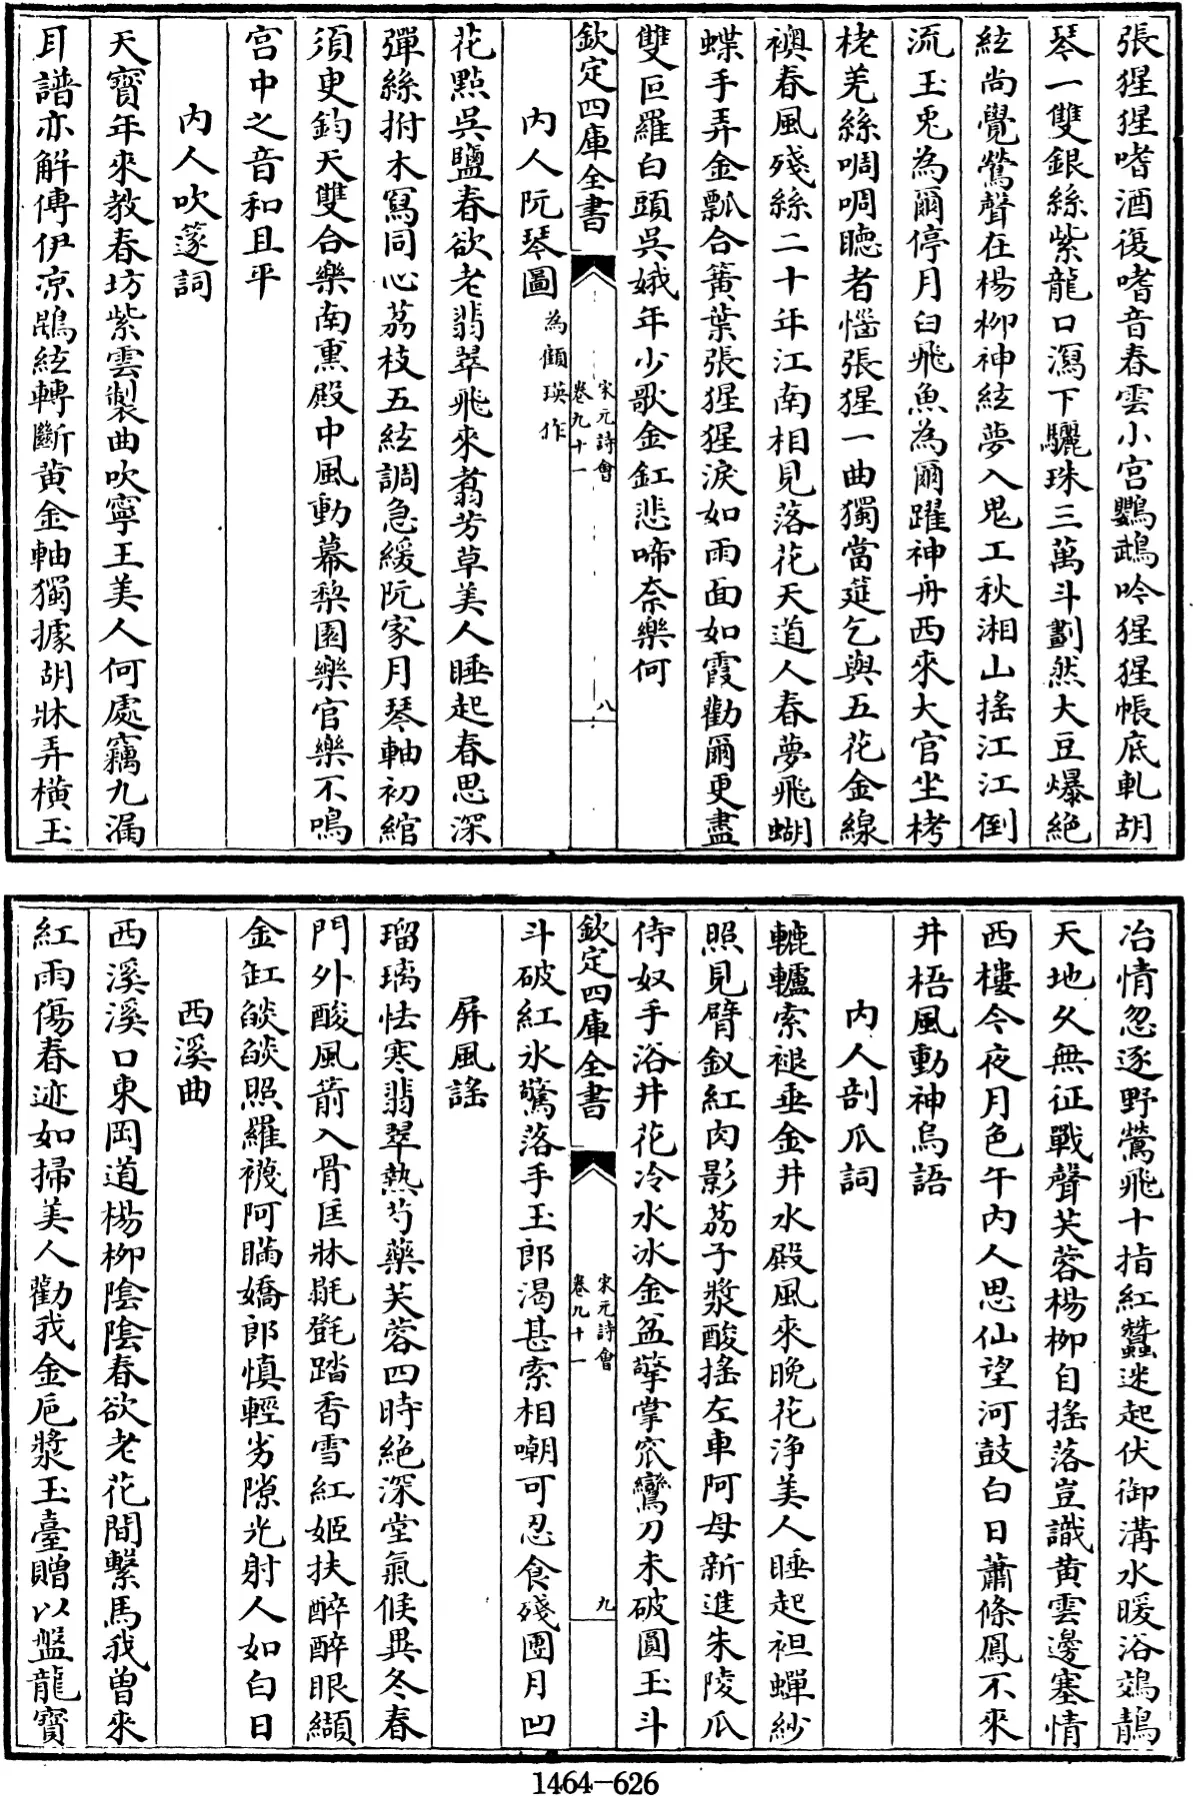 張猩猩嗜酒復嗜音春雲小宮鸚鵡吟猩猩帳底軋胡
琴一雙銀絲紫龍口瀉下驪珠三萬斗劃然大豆爆絕
絃尚覺鶯聲在楊柳神絃夢入鬼工秋湘山搖江江倒
流玉兎為爾停月臼飛魚為爾躍神舟西來大官坐栲
栳羌絲啁啁聴者惱張猩一曲獨當筵乞與五花金線
襖春風殘絲二十年江南相見落花天道人春夢飛蝴
蝶手弄金瓢合簧葉張猩猩淚如雨面如霞勸爾更盡
雙叵羅白頭吳娥年少歌金缸悲啼奈樂何
欽定四庫全書
宋元詩會
卷九十一
八
内人阮琴圖為顧瑛作
花點吳鹽春欲老翡翠飛來蒭芳草美人睡起春思深
彈絲拊木寫同心茘枝五絃調急緩阮家月琴軸初綰
須臾鈞天雙合樂南熏殿中風動幕棃園樂官樂不鳴
宫中之音和且平
内人吹篴詞
天寳年來教春坊紫雲製曲吹寧王美人何處竊九漏
耳譜亦解傳伊凉鵾絃轉斷黄金軸獨據胡牀弄横玉
冶情忽逐野鶯飛十指紅蠶迷起伏御溝水暖浴鵁鶄
天地久無征戰聲芙蓉楊柳自搖落豈識黄雲邊塞情
西樓今夜月色午内人思仙望河鼓白日蕭條鳳不來
井梧風動神烏語
内人剖瓜詞
轆轤索褪垂金井水殿風來晚花浄美人睡起袒蟬紗
照見臂釵紅肉影茘子漿酸搖左車阿母新進朱陵瓜
侍奴手浴井花冷水冰金盆擎掌窊鸞刀未破圓玉斗
欽定四庫全書
宋元詩會
卷九十一
九
斗破紅氷驚落手玉郎渴甚索相嘲可忍食殘團月凹
屏風謠
瑠璃怯寒翡翠熱芍藥芙蓉四時絶深堂氣候異冬春
門外酸風箭入骨匡牀毾㲪踏香雪紅姬扶醉醉眼纈
金缸燄燄照羅襪阿瞞嬌郎慎輕劣隙光射人如白日
西溪曲
西溪溪口東岡道楊柳陰陰春欲老花間繫馬我曽來
紅雨傷春迹如掃美人勸我金巵漿玉臺贈以盤龍寳
1464—626